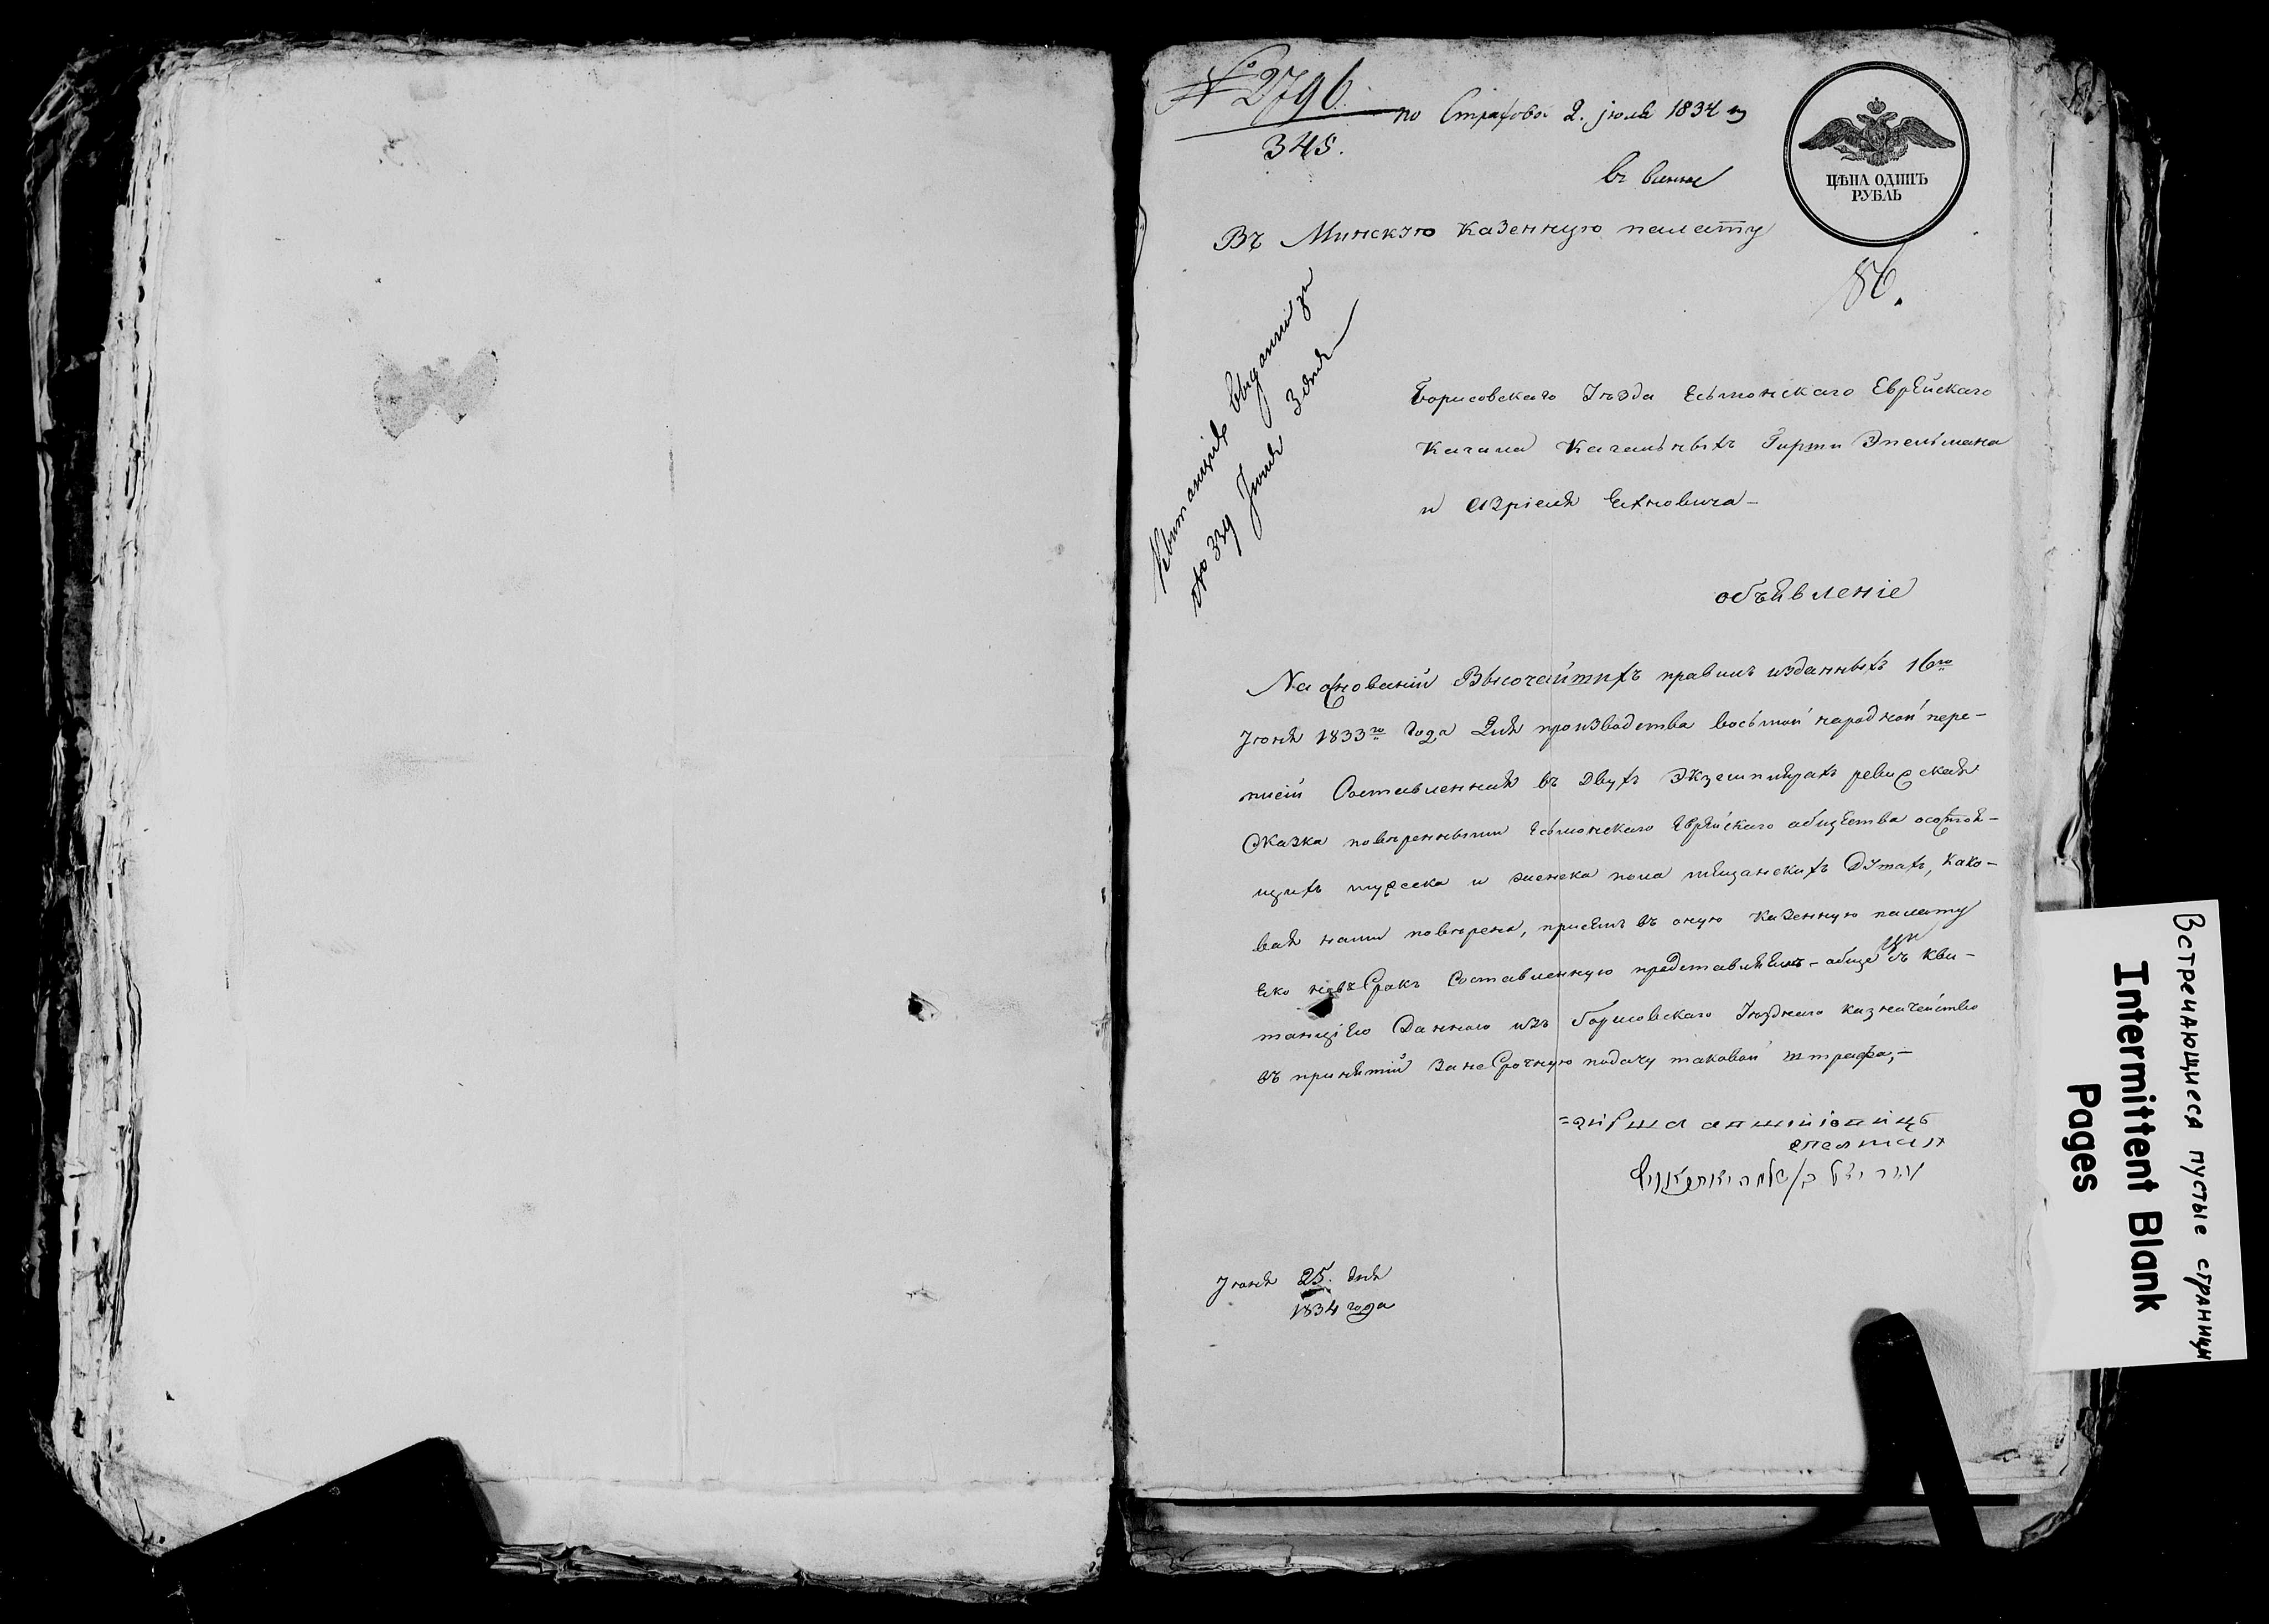 № 2796
345.
по Страховой 2. Июля 1834
ЦѢНА ОДИНЪ
РУБЛЬ
Въ Минскую казенную палату
86.
Квитанция выдании за
№ 339 Июля 3 дня
Борисовскаго уѣзда Есьмонскаго Еврѣйскаго
Кагала Кагальныхъ Гирши Эпельмана
и Азріеля
объявленіе
На основаніи Высочайшихъ правилъ изданныхъ 16го
Июня 1833го года Для производства восьмой народной пере-
писи Составленная въ Двухъ Экземплярахъ ревизская
Сказка повѣренными Есьмонскаго Еврѣйскаго общества о состоя-
щихъ мужеска и женска пола мѣщанскихъ Душахъ, како-
вая нами повѣрена, при семъ въ оную Казенную палату
яко не въ Срокъ Составленную представляемъ - обще съ кви-
танціею Данною изъ Борисовскаго Уезднаго казначейства
въ принятіи за не Срочную подачу таковой штрафа,-
Июня 25. дня
1834 года
Встречающиеся пустые страницы
Intermittent Blank
Pages